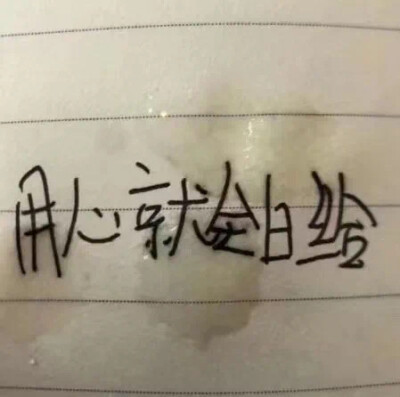 用心就会白给